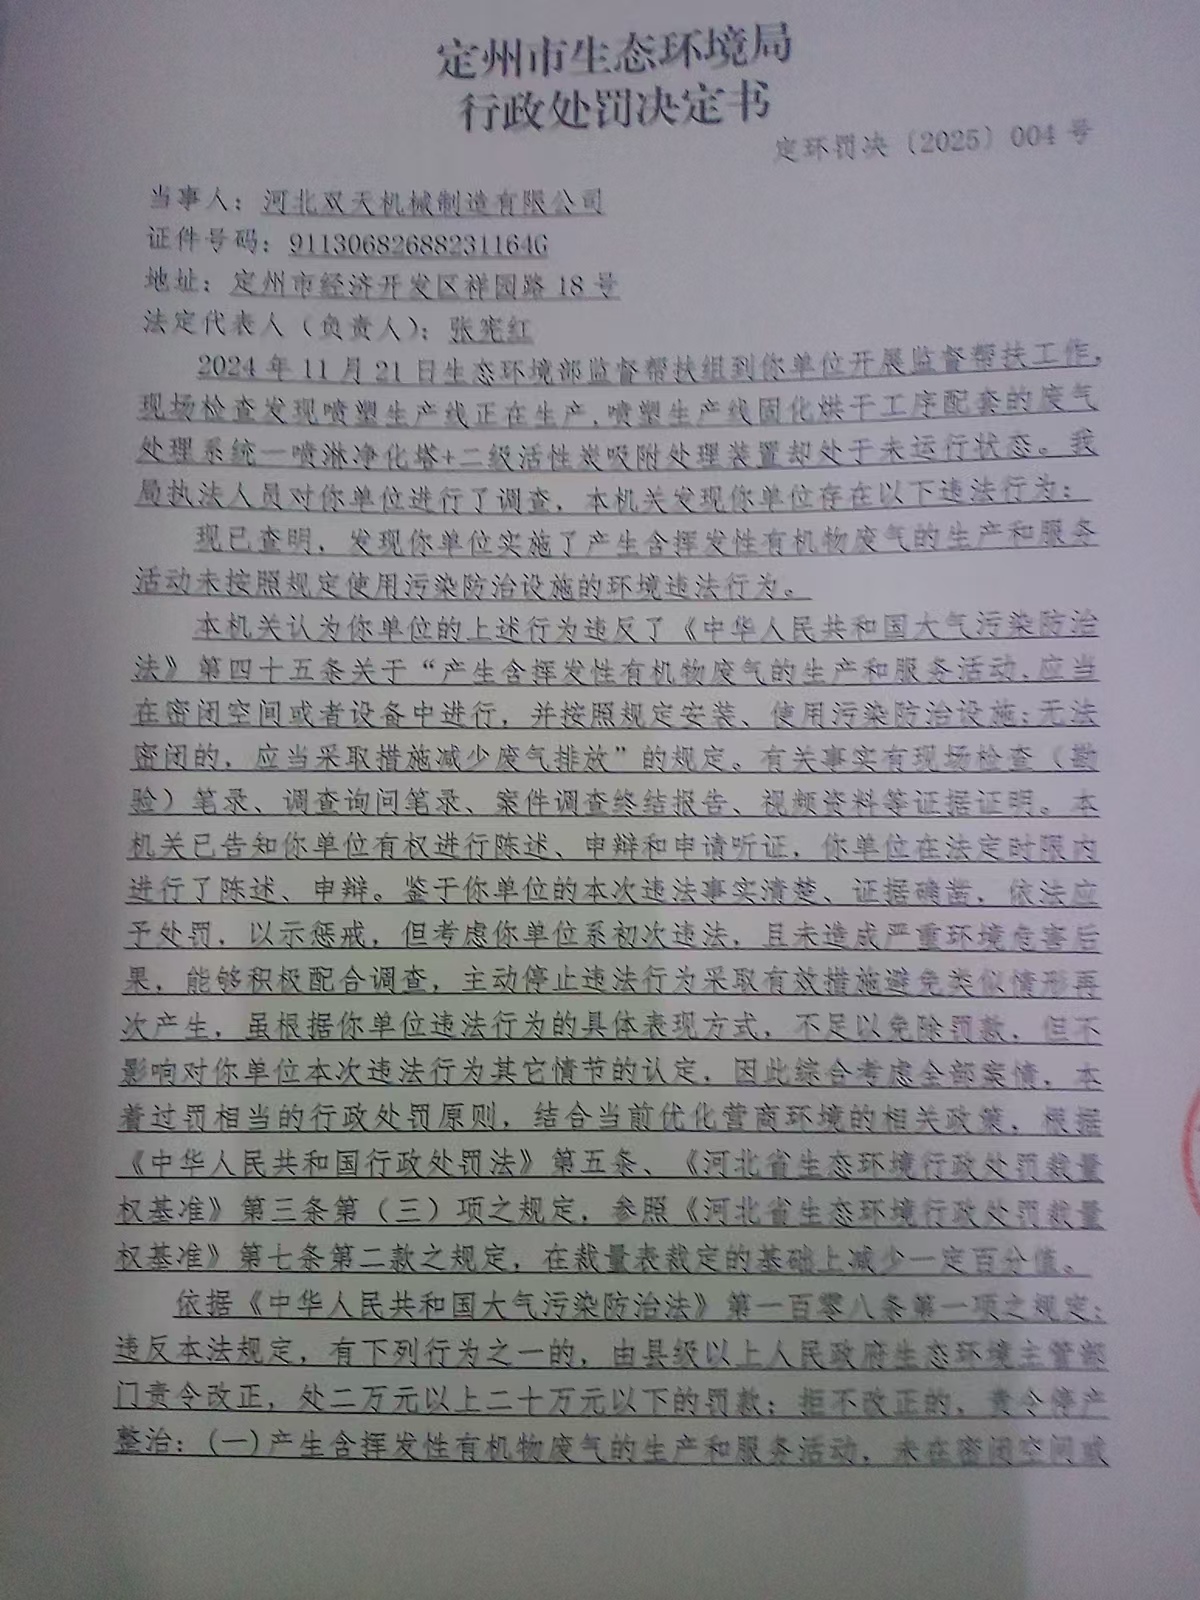 定州市生态环境局
行政处罚决定书
定环罚决〔2025〕004号
当事人：河北双天机械制造有限公司
证件号码：91130682688231164G
地址：定州市经济开发区祥园路18号
法定代表人（负责人）：张宪红
2024年11月21日生态环境部监督帮扶组到你单位开展监督帮扶工作，
现场检查发现喷塑生产线正在生产，喷塑生产线固化烘干工序配套的废气
处理系统一喷淋净化塔+二级活性炭吸附处理装置却处于未运行状态。我
局执法人员对你单位进行了调查，本机关发现你单位存在以下违法行为：
现已查明，发现你单位实施了产生含挥发性有机物废气的生产和服务
活动未按照规定使用污染防治设施的环境违法行为。
本机关认为你单位的上述行为违反了《中华人民共和国大气污染防治
法》第四十五条关于“产生含挥发性有机物废气的生产和服务活动，应当
在密闭空间或者设备中进行，并按照规定安装、使用污染防治设施；无法
密闭的，应当采取措施减少废气排放”的规定。有关事实有现场检查（勘
验）笔录、调查询问笔录、案件调查终结报告、视频资料等证据证明。本
机关已告知你单位有权进行陈述、申辩和申请听证，你单位在法定时限内
进行了陈述、申辩。鉴于你单位的本次违法事实清楚、证据确凿，依法应
予处罚，以示惩戒，但考虑你单位系初次违法，且未造成严重环境危害后
果，能够积极配合调查，主动停止违法行为采取有效措施避免类似情形再
次产生，虽根据你单位违法行为的具体表现方式，不足以免除罚款，但不
影响对你单位本次违法行为其它情节的认定，因此综合考虑全部案情，本
着过罚相当的行政处罚原则，结合当前优化营商环境的相关政策，根据
《中华人民共和国行政处罚法》第五条、《河北省生态环境行政处罚裁量
权基准》第三条第（三）项之规定，参照《河北省生态环境行政处罚裁量
权基准》第七条第二款之规定，在裁量表裁定的基础上减少一定百分值。
依据《中华人民共和国大气污染防治法》第一百零八条第一项之规定：
违反本法规定，有下列行为之一的，由县级以上人民政府生态环境主管部
门责令改正，处二万元以上二十万元以下的罚款；拒不改正的，责令停产
整治：（一）产生含挥发性有机物废气的生产和服务活动，未在密闭空间或